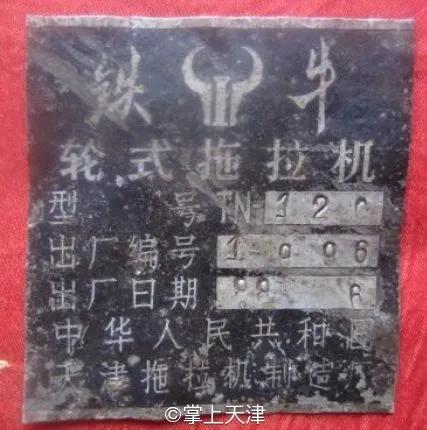 铁 牛
轮式拖拉机
型 号 TN-120
出厂编号
出厂日期
中华人民共和国
天津拖拉机制造厂
©掌上天津